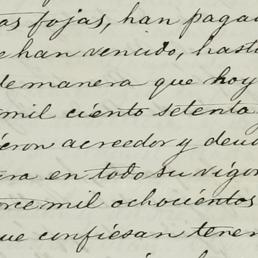 as fojas, han pagad
e han vencido, hasta
de manera que hoy
mil ciento setenta
ieron acreedor y deud
era en todo su vigor
orce mil ochocientos
que confiesan tener